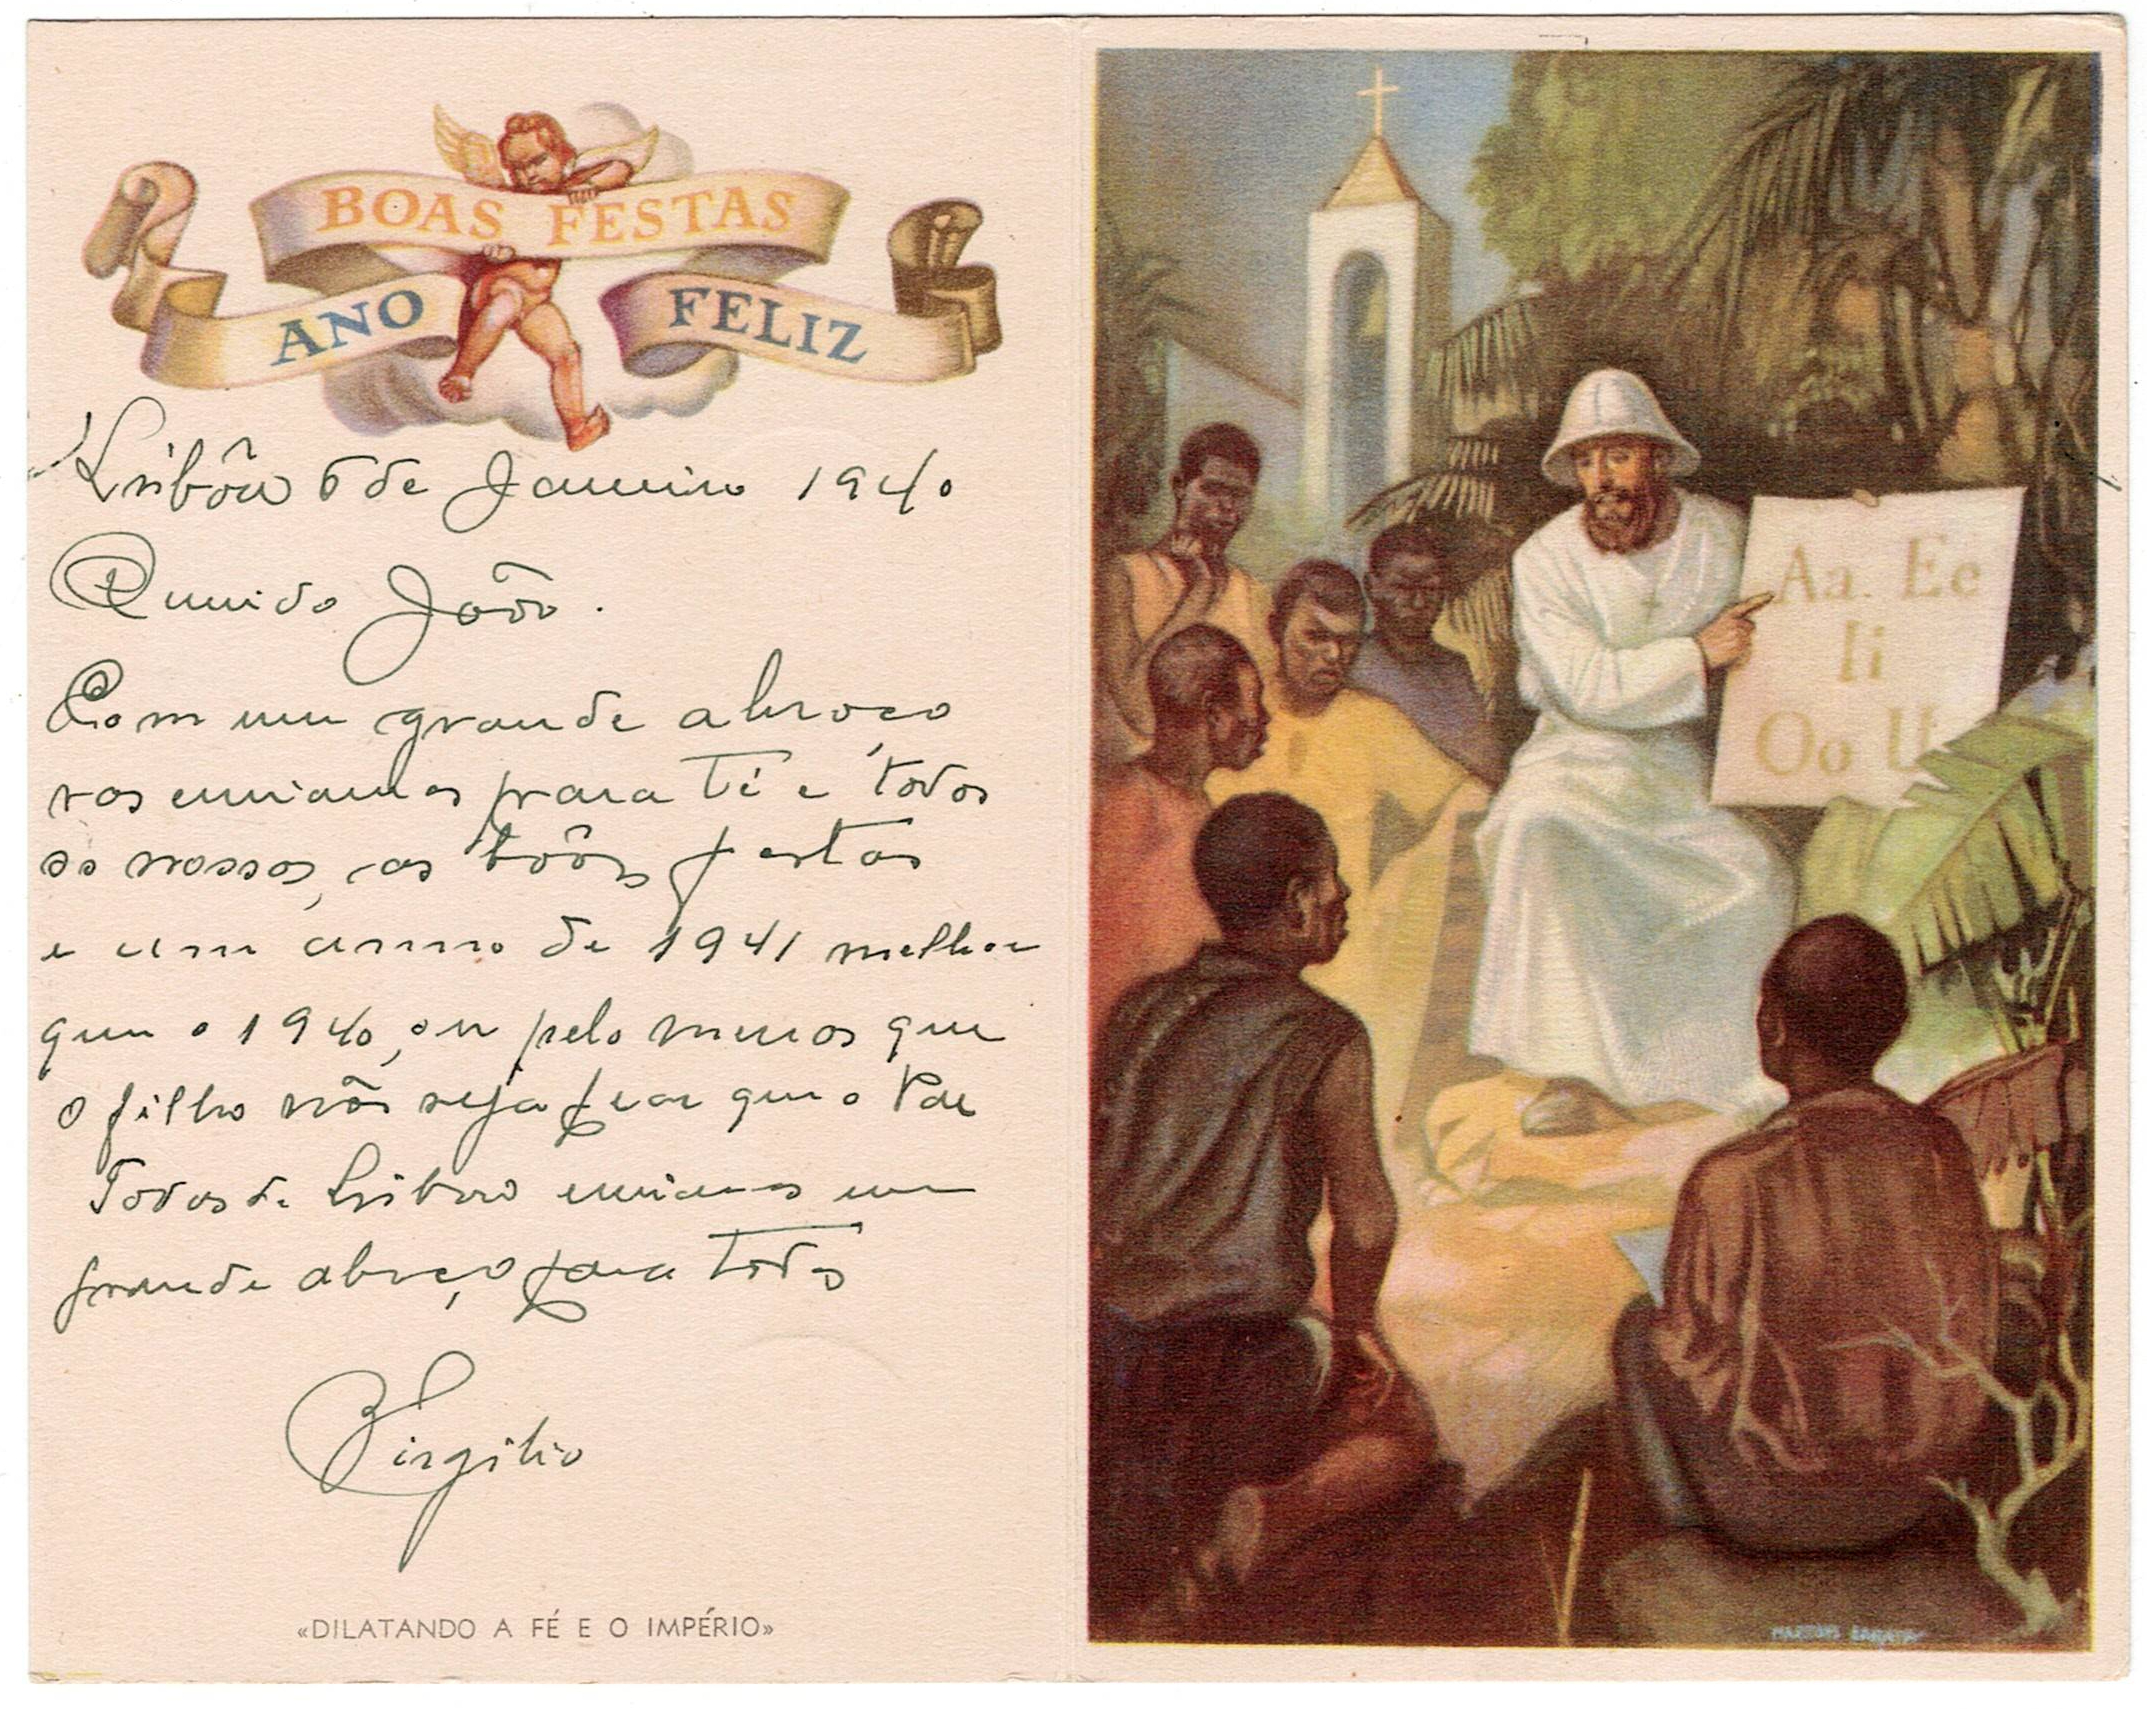 BOAS FESTAS
ANO FELIZ
Lisbôa 6 de Janeiro 1940
Querido João.
Com um grande abraço
vos enviamos para Té e todos
os nossos, as bôas festas
e um anno de 1941 melhor
que o 1940, ou pelo menos que
o filho não seja pear que o Pae
Todos de Lisboa enviamos um
grande abraço para todos
Virgilio
«DILATANDO A FÉ E O IMPÉRIO»
Aa. Ee
Ii
Oo U
MARTINS BARATA